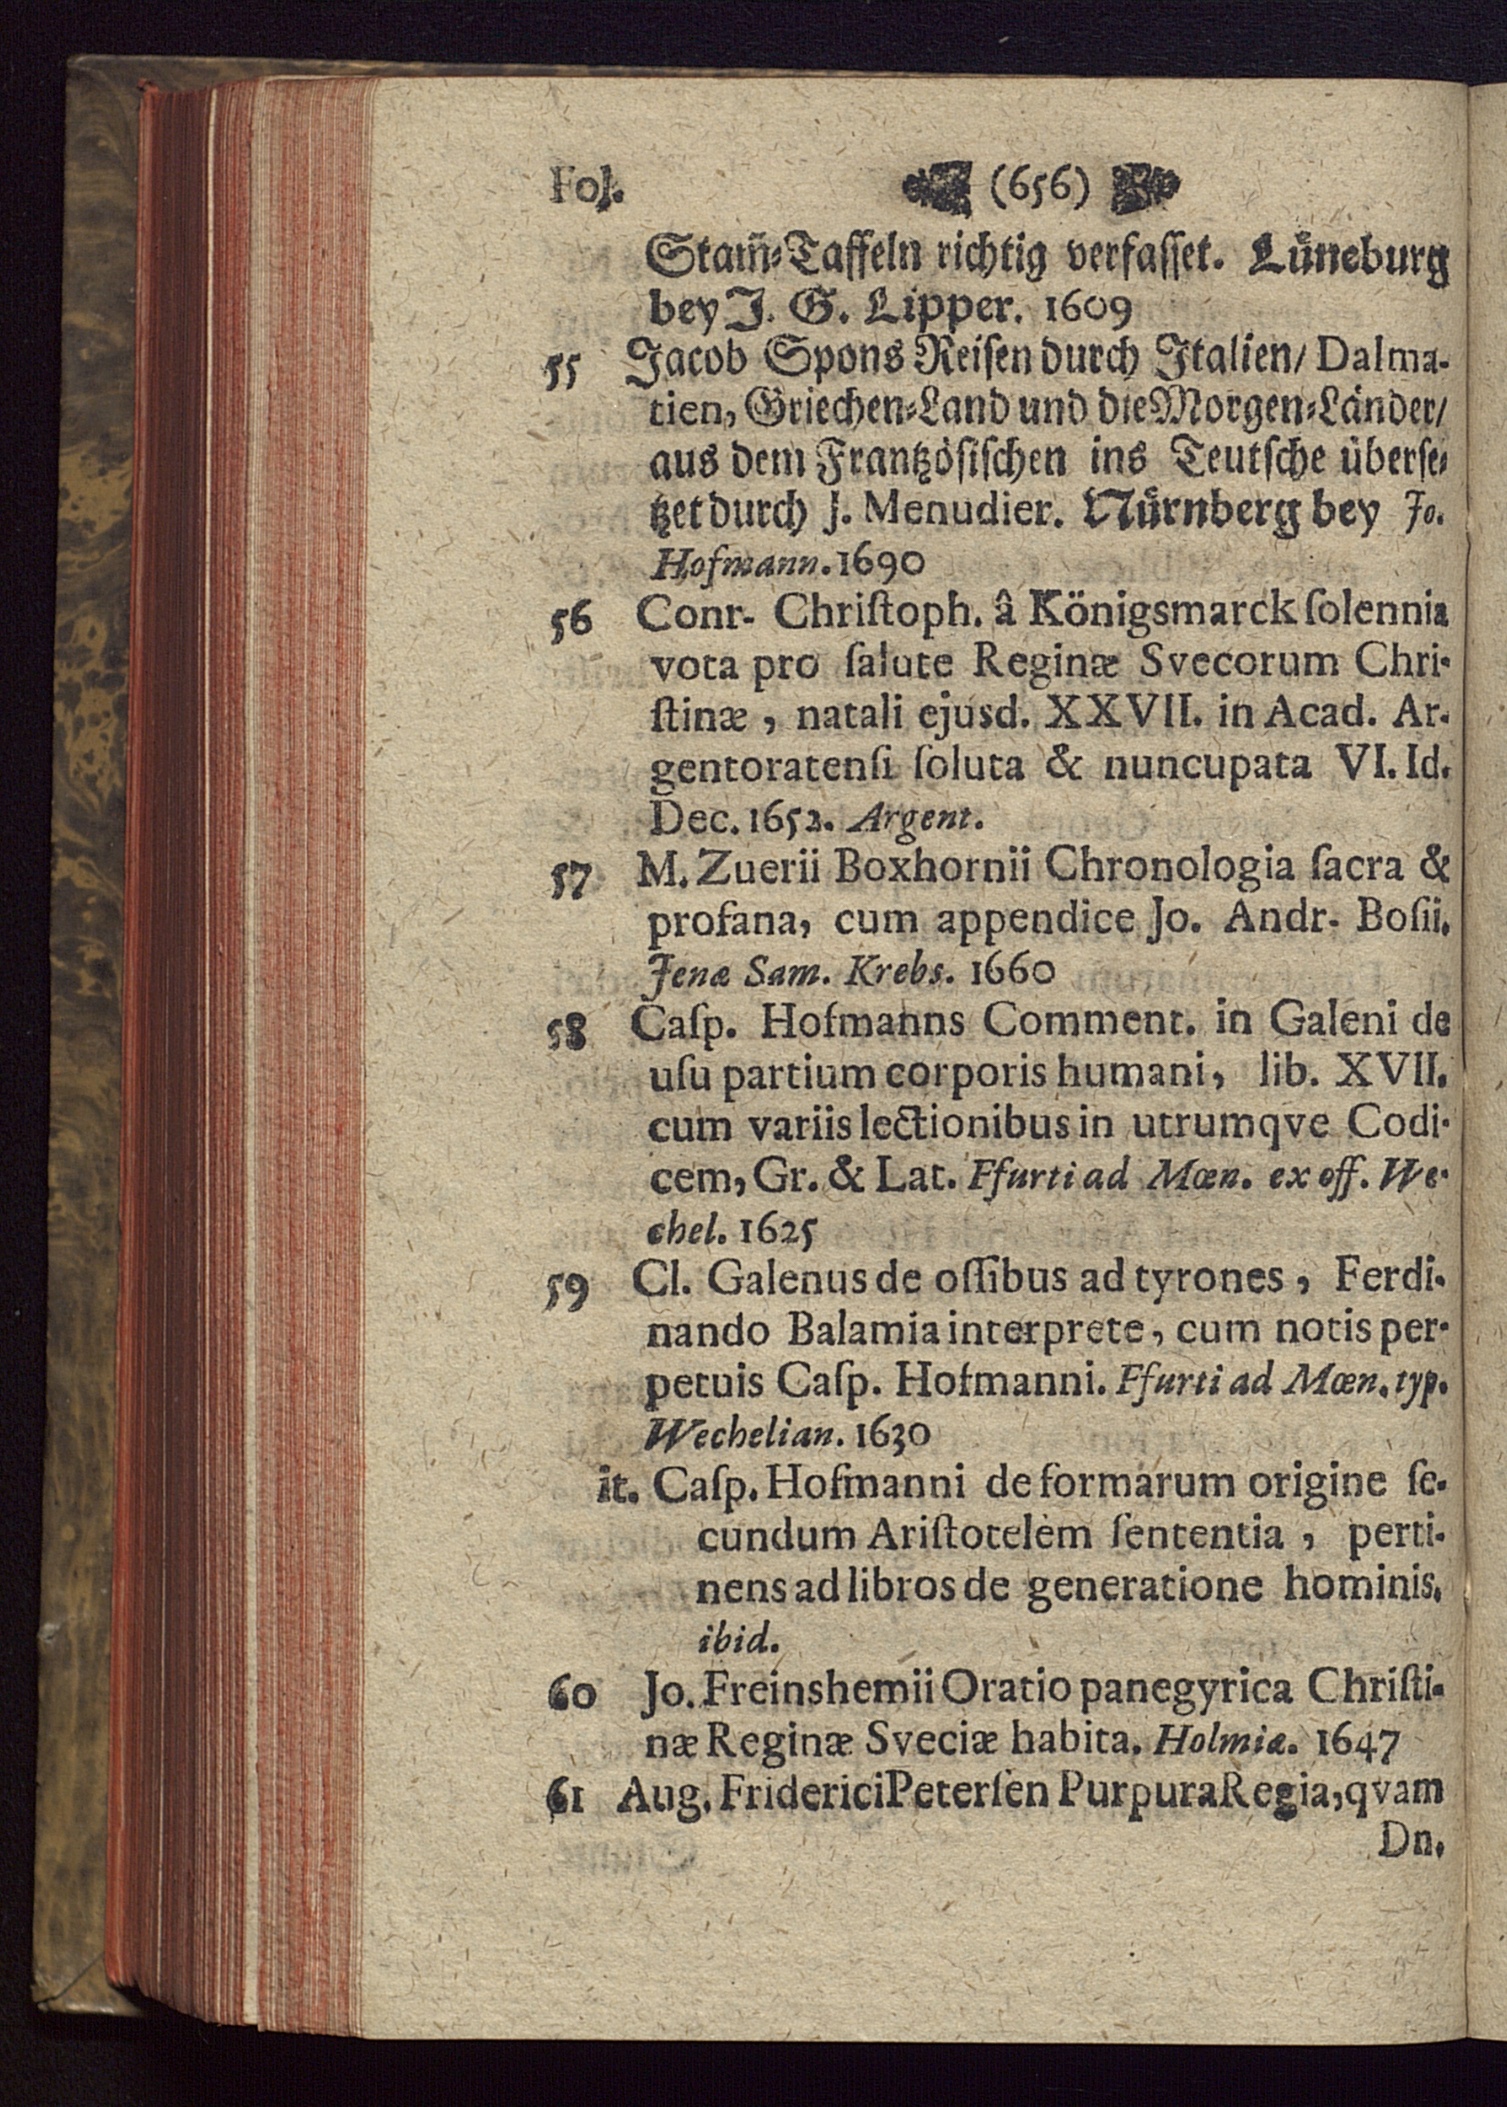 Fol. (656)
Stam̃⸗Taffeln richtig verfaſſet. Lüneburg
bey J. G. Lipper. 1609
55 Jacob Spons Reiſen durch Italien/ Dalma-
tien, Griechen⸗Land und die Morgen⸗Länder/
aus dem Frantzöſiſchen ins Teutſche überſe⸗
tzet durch J. Menudier. Nürnberg bey Jo.
Hofmann. 1690
56 Conr- Chriſtoph. â Königsmarck ſolennia
vota pro ſalute Reginæ Svecorum Chri-
ſtinæ, natali ejusd. XXVII. in Acad. Ar-
gentoratenſi ſoluta & nuncupata VI. Id.
Dec. 1652. Argent.
57 M. Zuerii Boxhornii Chronologia ſacra &
profana, cum appendice Jo. Andr- Boſii.
Jenæ Sam. Krebs. 1660
58 Caſp. Hofmanns Comment. in Galeni de
uſu partium corporis humani, lib. XVII.
cum variis lectionibus in utrumqve Codi-
cem, Gr. & Lat. Ffurti ad Mœn. ex off. We-
chel. 1625
59 Cl. Galenus de oſſibus ad tyrones, Ferdi-
nando Balamia interprete, cum notis per-
petuis Caſp. Hofmanni. Ffurti ad Mœn. typ.
Wechelian. 1630
it. Caſp. Hofmanni de formarum origine ſe-
cundum Ariſtotelem ſententia, perti-
nens ad libros de generatione hominis.
ibid.
60 Jo. Freinshemii Oratio panegyrica Chriſti-
næ Reginæ Sveciæ habita. Holmiæ. 1647
61 Aug. Friderici Peterſen Purpura Regia, qvam
Dn.